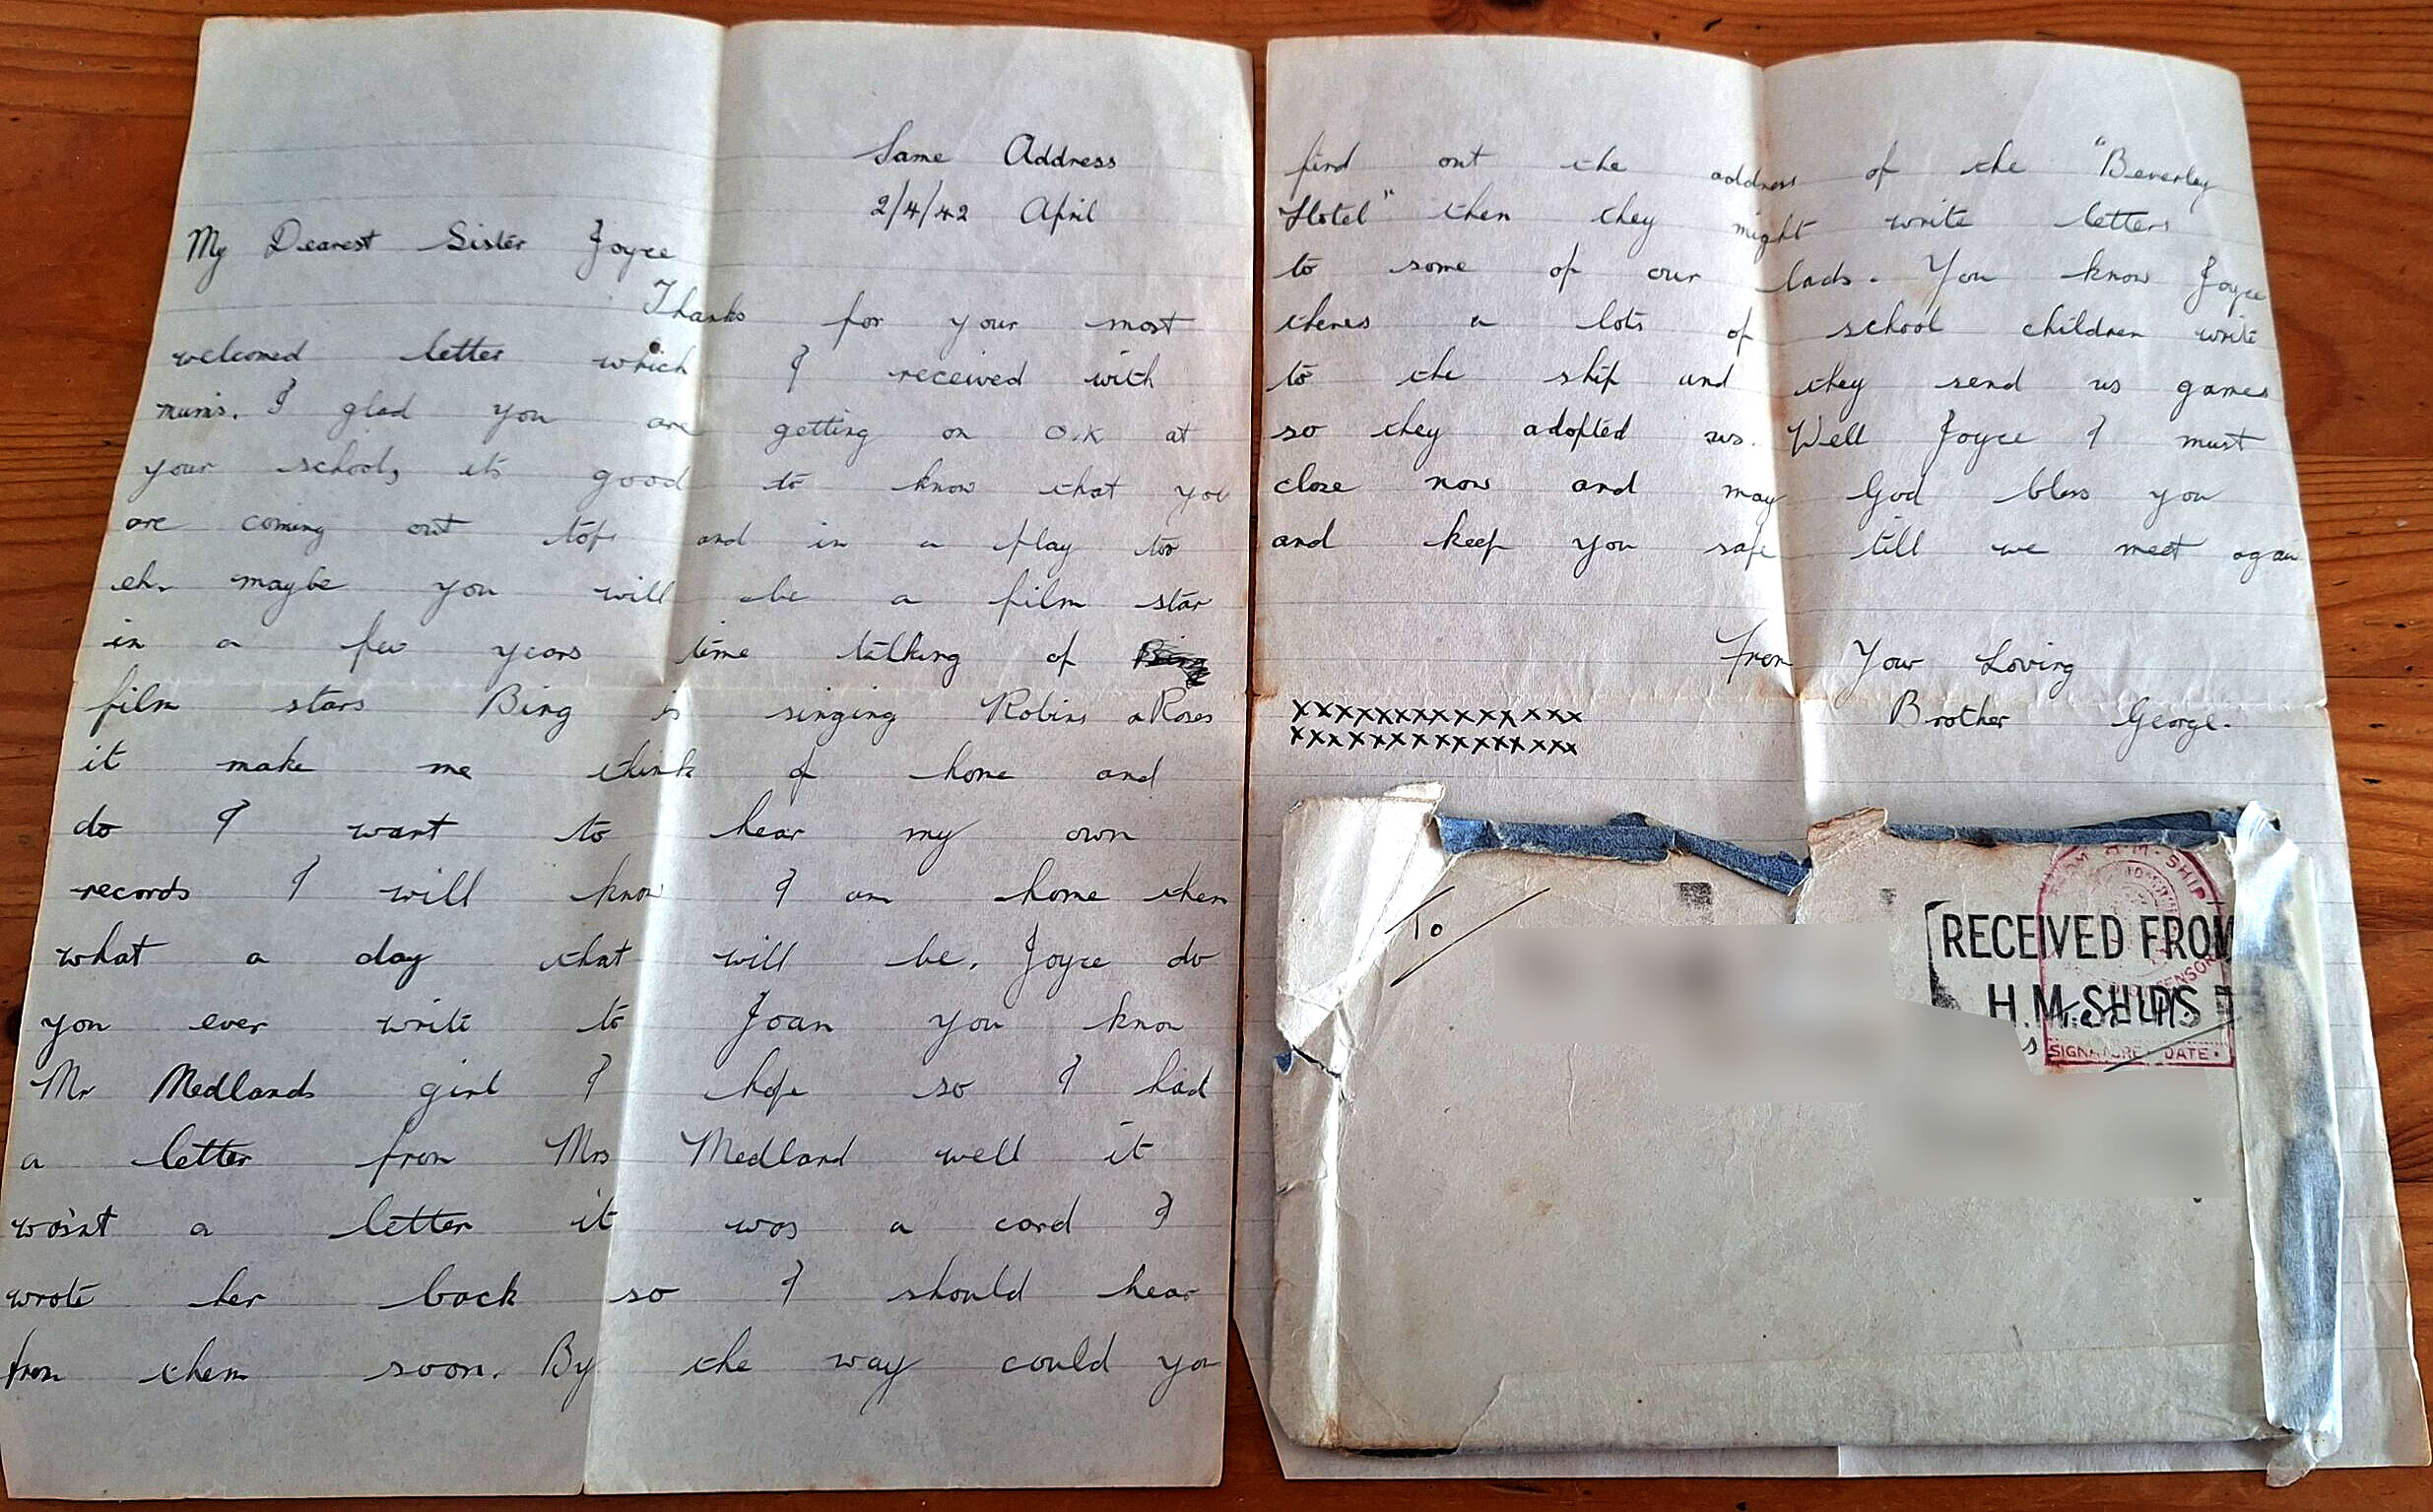 Same Address
2/4/42 April
My Dearest Sister Joyce
Thanks for your most
welcomed letter which I received with
mum's. I glad you are getting on O.K at
your school, its good to know that you
are coming out tops and in a play too
eh. maybe you will be a film star
in a few years time talking of Bing
film stars Bing is singing Robins a Roses
it make me think of home and
do I want to hear my own
records I will know I am home then
what a day that will be. Joyce do
you ever write to Joan you know
Mr Medlands girl I hope so I had
a letter from Mrs Medland well it
wasnt a letter it was a card I
wrote her back so I should hear
from them soon. By the way could you
find out the address of the "Beverley
Hotel" then they might write letters
to some of our lads. You know Joyce
theres a lots of school children write
to the ship and they send us games
so they adopted us. Well Joyce I must
close now and may God bless you
and keep you safe till we meet again
From Your Loving
Brother George.
xxxxxxxxxxxxxxx
xxxxxxxxxxxxxxx
To
RECEIVED FROM
H.M. SHIPS
FROM H.M. SHIP
CENSOR
SIGNATURE DATE